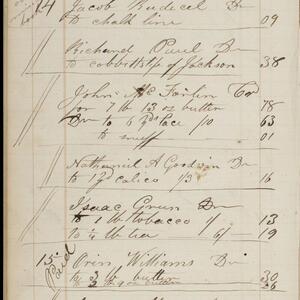 14 Jacob Rudecel Dr
to chalk line 09
Richard Paul Dr
to cobbitts of Jackson 38
John Mc Farlin Cr
for 7 lb 13 oz butter 78
Dr to 6 yds Lace /10 63
to snuff 01
Nathaniel A Goodwin Dr
to 1½ calico 1/3 16
Isaac Grun Dr
to 1 lb tobacco / 13
to ¼ lb tea 6/ 19
15 Orin Williams Dr
Paid
to 3 lb butter 30